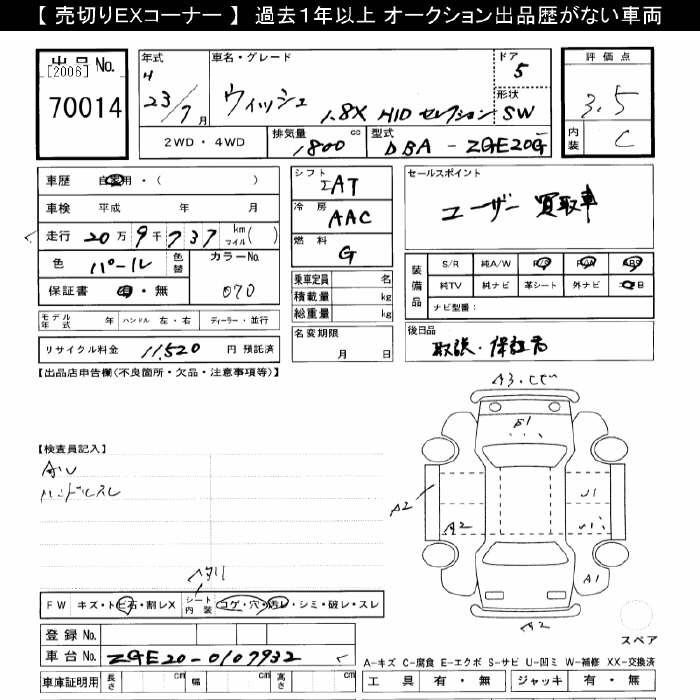 【 売切りEXコーナー 】 過去１年以上 オークション出品歴がない車両
出品 No.
[2006]
70014
年式
H
23/7月
車名・グレード
ウィッシュ
1.8X HID セレクション
ドア
5
形状
SW
2WD・4WD
排気量
1800 cc
型式
DBA - ZGE20G
評価点
3.5
内装
C
車歴 自家用・( )
車検 平成 年 月
走行 20万9千737 km マイル( )
色 パール 色替
カラーNo. 070
保証書 有・無
モデル年式 年 ハンドル 左・右 ディーラー・並行
リサイクル料金 11,520 円 預託済
シフト
IAT
冷房
AAC
燃料
G
乗車定員 名
積載量 kg
総重量 kg
名変期限
月 日
セールスポイント
ユーザー 買取車
装備品
S/R 純A/W P/S P/W ABS
純TV 純ナビ 革シート 外ナビ エアB
ナビ型番:
後日品
取説・保証書
【出品店申告欄(不良箇所・欠品・注意事項等)】
【検査員記入】
ハンドルスレ
A2
A2
U1
A1
A2
FW キズ・トビ石・割レX シート内装 コゲ・穴・汚レ・シミ・破レ・スレ
登録 No.
車台 No. ZGE20-0107932
車庫証明用 長さ cm 幅 cm 高さ cm
スペア
A-キズ C-腐食 E-エクボ S-サビ U-凹ミ W-補修 XX-交換済
工具 有・無 ジャッキ 有・無